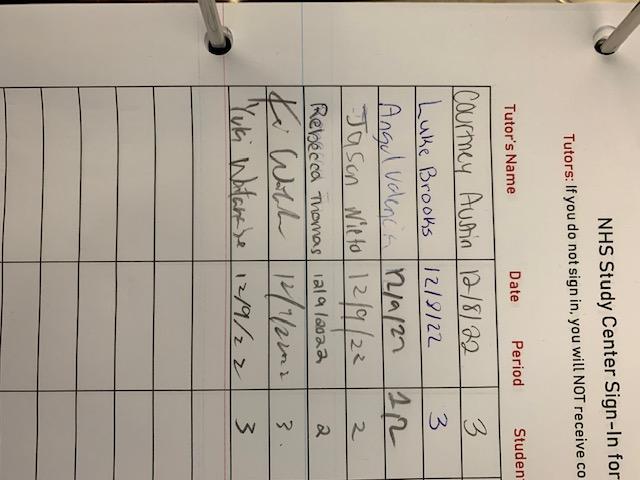 NHS Study Center Sign-In for
Tutors: If you do not sign in, you will NOT receive co
Tutor's Name Date Period Studen
Courtney Austin 12/8/22 3
Luke Brooks 12/8/22 3
Angel Valencia 12/9/22 1/2
Jason Nieto 12/9/22 2
Rebecca Thomas 12/9/2022 2
12/9/2022 3
Yuki Watanabe 12/9/22 3